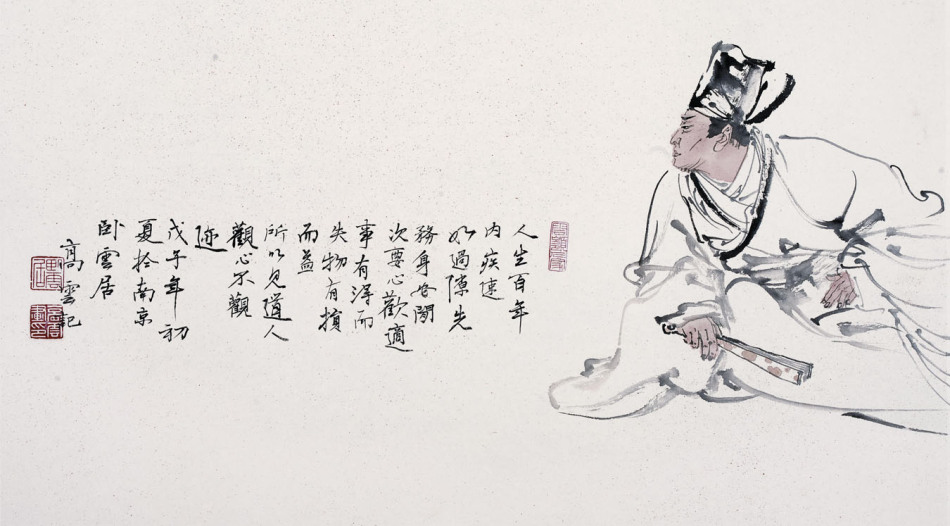 人生百年
内疾速
如過隙先
務身安閑
次要心歡適
事有得而
失物有損
而益
所以見道人
觀心不觀
迹
戊子年初
夏於南京
卧雲居
高雲記